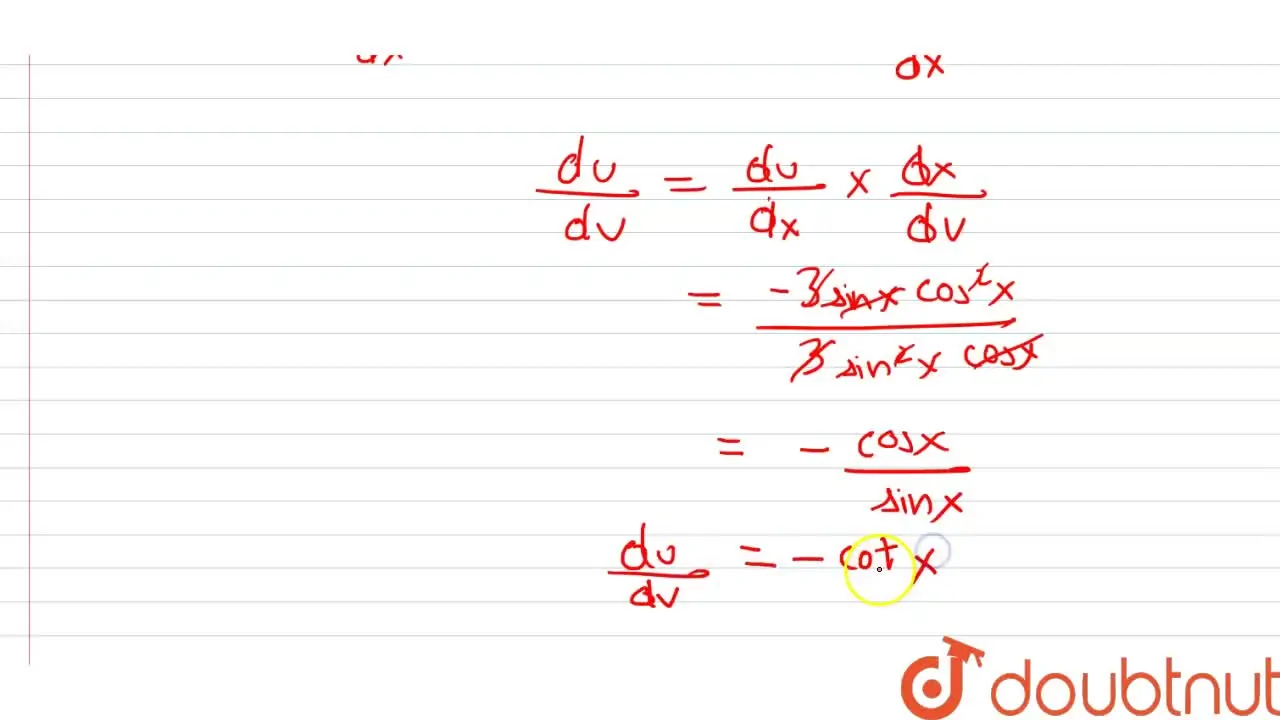 dx dx
du/dv = du/dx × dx/dv
= -3 sinx cos²x / 3 sin²x cosx
= - cosx / sinx
du/dv = - cot x
doubtnut